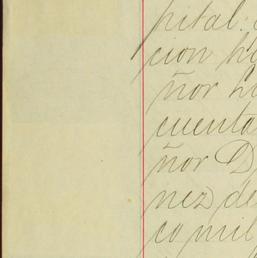 pital.
cion h
ñor L
cuenta
ñor D
nez de
co mil